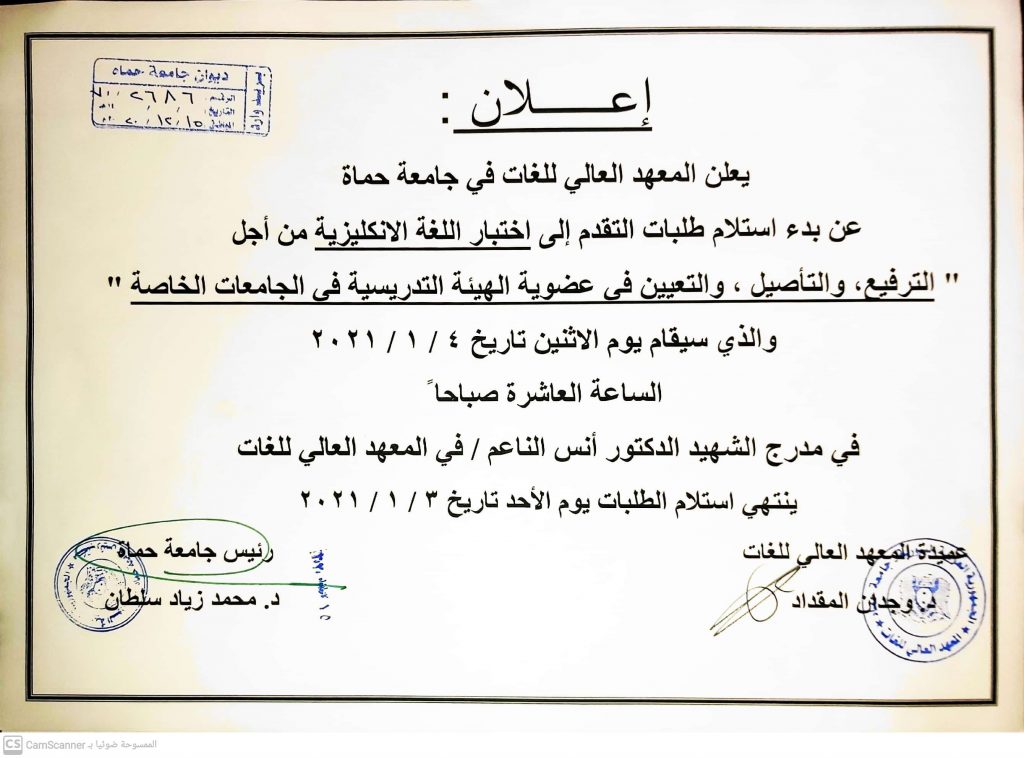 ديوان جامعة حماه
بريد وارد
الرقم: ٢٦٨٦
التاريخ:
إعـــــلان :
يعلن المعهد العالي للغات في جامعة حماة
عن بدء استلام طلبات التقدم إلى اختبار اللغة الانكليزية من أجل
" الترفيع، والتأصيل ، والتعيين في عضوية الهيئة التدريسية في الجامعات الخاصة "
والذي سيقام يوم الاثنين تاريخ ٤ / ١ / ٢٠٢١
الساعة العاشرة صباحاً
في مدرج الشهيد الدكتور أنس الناعم / في المعهد العالي للغات
ينتهي استلام الطلبات يوم الأحد تاريخ ٣ / ١ / ٢٠٢١
عميدة المعهد العالي للغات
د. وجدان المقداد
المعهد العالي للغات
رئيس جامعة حماة
د. محمد زياد سلطان
CS CamScanner الممسوحة ضوئيا بـ